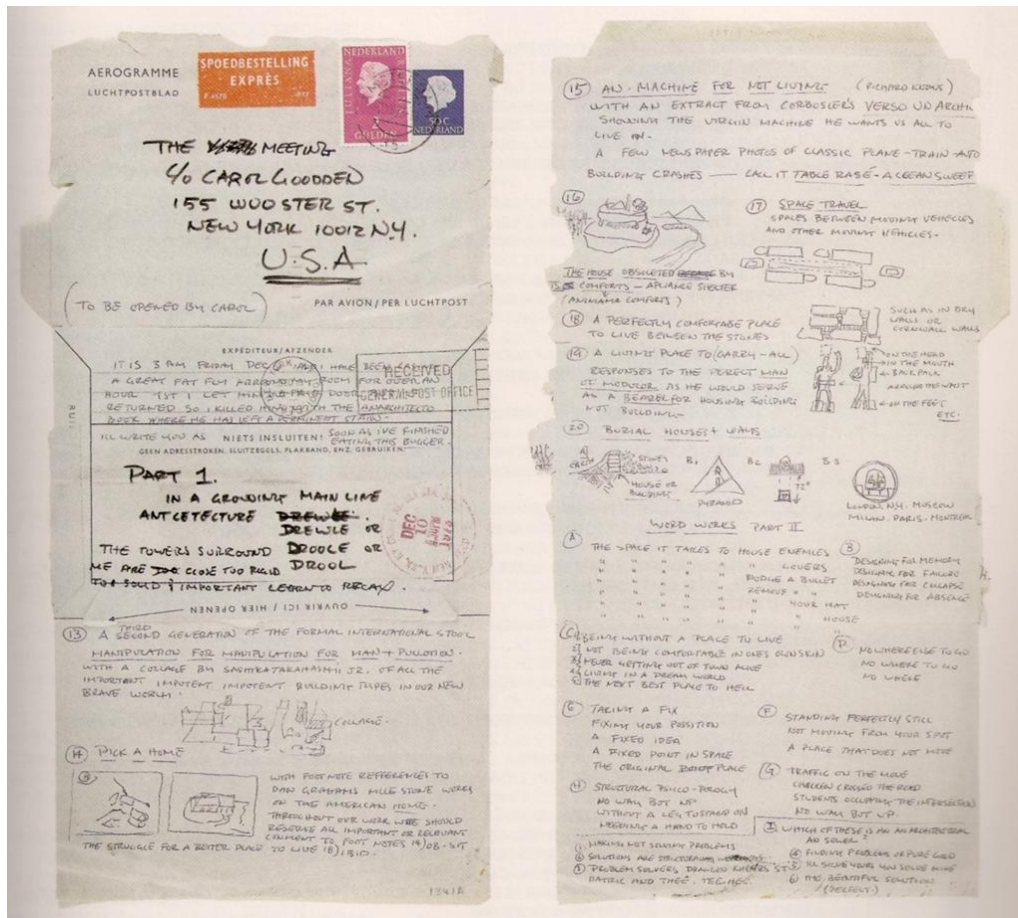 AEROGRAMME
LUCHTPOSTBLAD
SPOEDBESTELLING
EXPRÈS
NEDERLAND
JULIANA
2
GULDEN
50C
NEDERLAND
THE MEETING
C/O CAROL GOODDEN
155 WOOSTER ST.
NEW YORK 10012 N.Y.
U.S.A
(TO BE OPENED BY CAROL)
PAR AVION / PER LUCHTPOST
EXPÉDITEUR/AFZENDER
IT IS 3 AM FRIDAY DEC AND I HAVE BEEN
A GREAT FAT FLY AROUND MY ROOM FOR OVER AN
HOUR. 1ST I LET HIM
RETURNED SO I KILLED HIM WITH THE ANARCHITECTS
BOOK WHERE HE HAS LEFT A PERMINENT STAIN.
RECEIVED
GENERAL POST OFFICE
ILL WRITE YOU AS SOON AS I'VE FINISHED
NIETS INSLUITEN! EATING THIS BUGGER.
GEEN ADRESSTROKEN, SLUITZEGELS, PLAKBAND, ENZ. GEBRUIKEN.
PART 1.
IN A GROWING MAIN LINE
ANTCETECTURE DREWLE
DREWLE OR
THE TOWERS SURROUND DROOLE OR
ME ARE TOO CLOSE TOO RIGID DROOL
TOO SOLID & IMPORTANT LEARN TO RELAX.
DEC
10
OUVRIR ICI / HIER OPENEN
13 A THIRD SECOND GENERATION OF THE FORMAL INTERNATIONAL STOOL
MANIPULATION FOR MANIPULATION FOR MAN + PULLOTION.
WITH A COLLAGE BY JR. OF ALL THE
IMPORTANT IMPOTENT IMPOTENT BUILDING TYPES IN OUR NEW
BRAVE WORLD.
COLLAGE.
14 PICK A HOME
WITH FOOT NOTE REFFERENCES TO
DAN GRAHAMS MILE STONE WORK
ON THE AMERICAN HOME.
THROUGHOUT OUR WORK WE SHOULD
RESERVE ALL IMPORTANT OR RELEVANT
COMMENT TO FOOT NOTES
THE STRUGGLE FOR A BETTER PLACE TO LIVE
1341A
15 AN. MACHINE FOR NOT LIVING (RICHARD KNOWS)
WITH AN EXTRACT FROM CORBUSIER'S VERSO UN ARCHI.
SHOWING THE VIRGIN MACHINE HE WANTS US ALL TO
LIVE IN.
A FEW NEWSPAPER PHOTOS OF CLASSIC PLANE-TRAIN-AUTO
BUILDING CRASHES — CALL IT TABLE RASE - A CLEAN SWEEP
16
THE HOUSE OBSOLETED BY
COMFORTS - APLIANCE SHELTER
COMFORTS)
17 SPACE TRAVEL
SPACES BETWEEN MOVING VEHICLES
AND OTHER MOVING VEHICLES.
18 A PERFECTLY COMFORTABLE PLACE
TO LIVE BETWEEN THE STONES
SUCH AS IN DRY
WALLS OR
CORNWALL WALLS
19 A LIVING PLACE TO (CARRY-ALL)
RESPONSES TO THE PERFECT MAN
OF MODULOR AS HE WOULD SERVE
AS A BEARER FOR HOUSING BUILDING
NOT BUILDING.
ON THE HEAD
IN THE MOUTH
BACK PACK
AROUND THE WAIST
ON THE FEET
ETC.
20 BURIAL HOUSES + WAYS
EARTH
HOUSE OR
BUILDING
B1
PYRAMID
B2
B3
LONDON. N.Y. MOSCOW
MILAN. PARIS. MONTREAL
WORD WORKS PART II
A THE SPACE IT TAKES TO HOUSE ENEMIES
" " " " " " LOVERS
" " " " " DODGE A BULLET
" " " " " REMOVE " "
" " " " " " YOUR HAT
" " " " " " " HOUSE
B DESIGNING FOR MEMORY
DESIGNING FOR FAILURE
DESIGNING FOR COLLAPSE
DESIGNING FOR ABSENCE
C 1 BEING WITHOUT A PLACE TO LIVE
2 NOT BEING COMFORTABLE IN ONES OWN SKIN
3 NEVER GETTING OUT OF TOWN ALIVE
4 LIVING IN A DREAM WORLD
5 THE NEXT BEST PLACE TO HELL
D NOWHERE ELSE TO GO
NO WHERE TO GO
NO WHERE
E TAKING A FIX
FIXING YOUR POSSITION
A FIXED IDEA
A FIXED POINT IN SPACE
THE ORIGINAL PLACE
F STANDING PERFECTLY STILL
NOT MOVING FROM YOUR SPOT
A PLACE THAT DOES NOT MOVE
G TRAFFIC ON THE MOVE
CHICKEN CROSSED THE ROAD
STUDENTS OCCUPYING THE INTERSECTION
NO WAY BUT UP.
H STRUCTURAL
NO WAY BUT UP
WITHOUT A LEG TO STAND ON
NEEDING A HAND TO HOLD
I WHICH OF THESE IS AN ARCHITECTURAL
ANSWER?
1 MAKING NOT SOLVING PROBLEMS
2 SOLUTIONS ARE
3 PROBLEM SOLVERS DRAGON KILLERS ST
PATRIC AND THEE. TEE-HEE.
4 FINDING PROBLEMS OF PURE GOLD
5 ILL SOLVE YOURS YOU SOLVE MINE
6 THE BEAUTIFUL SOLUTION
(PERFECT.)